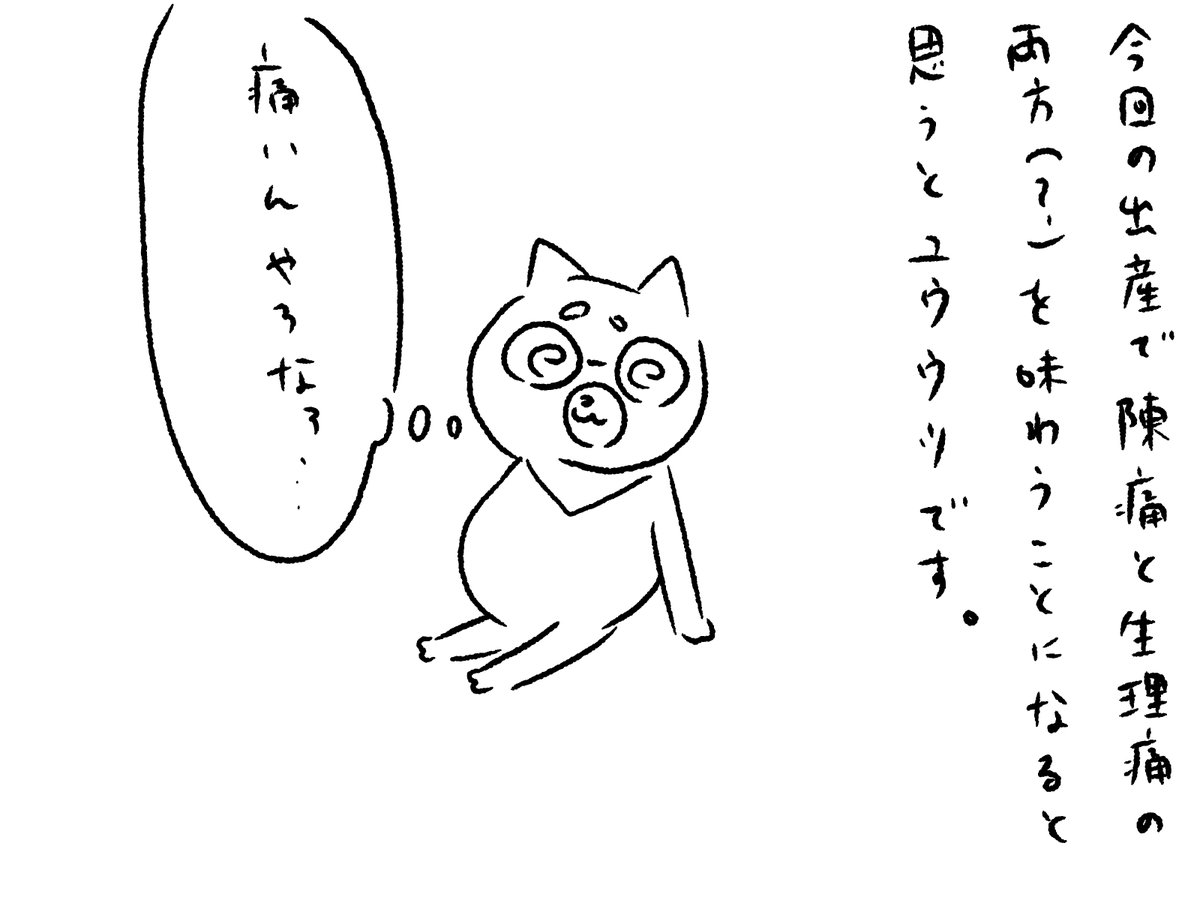 今回の出産で陳痛と生理痛の
両方(?)を味わうことになると
思うとユウウツです。
痛いんやろなぅ…